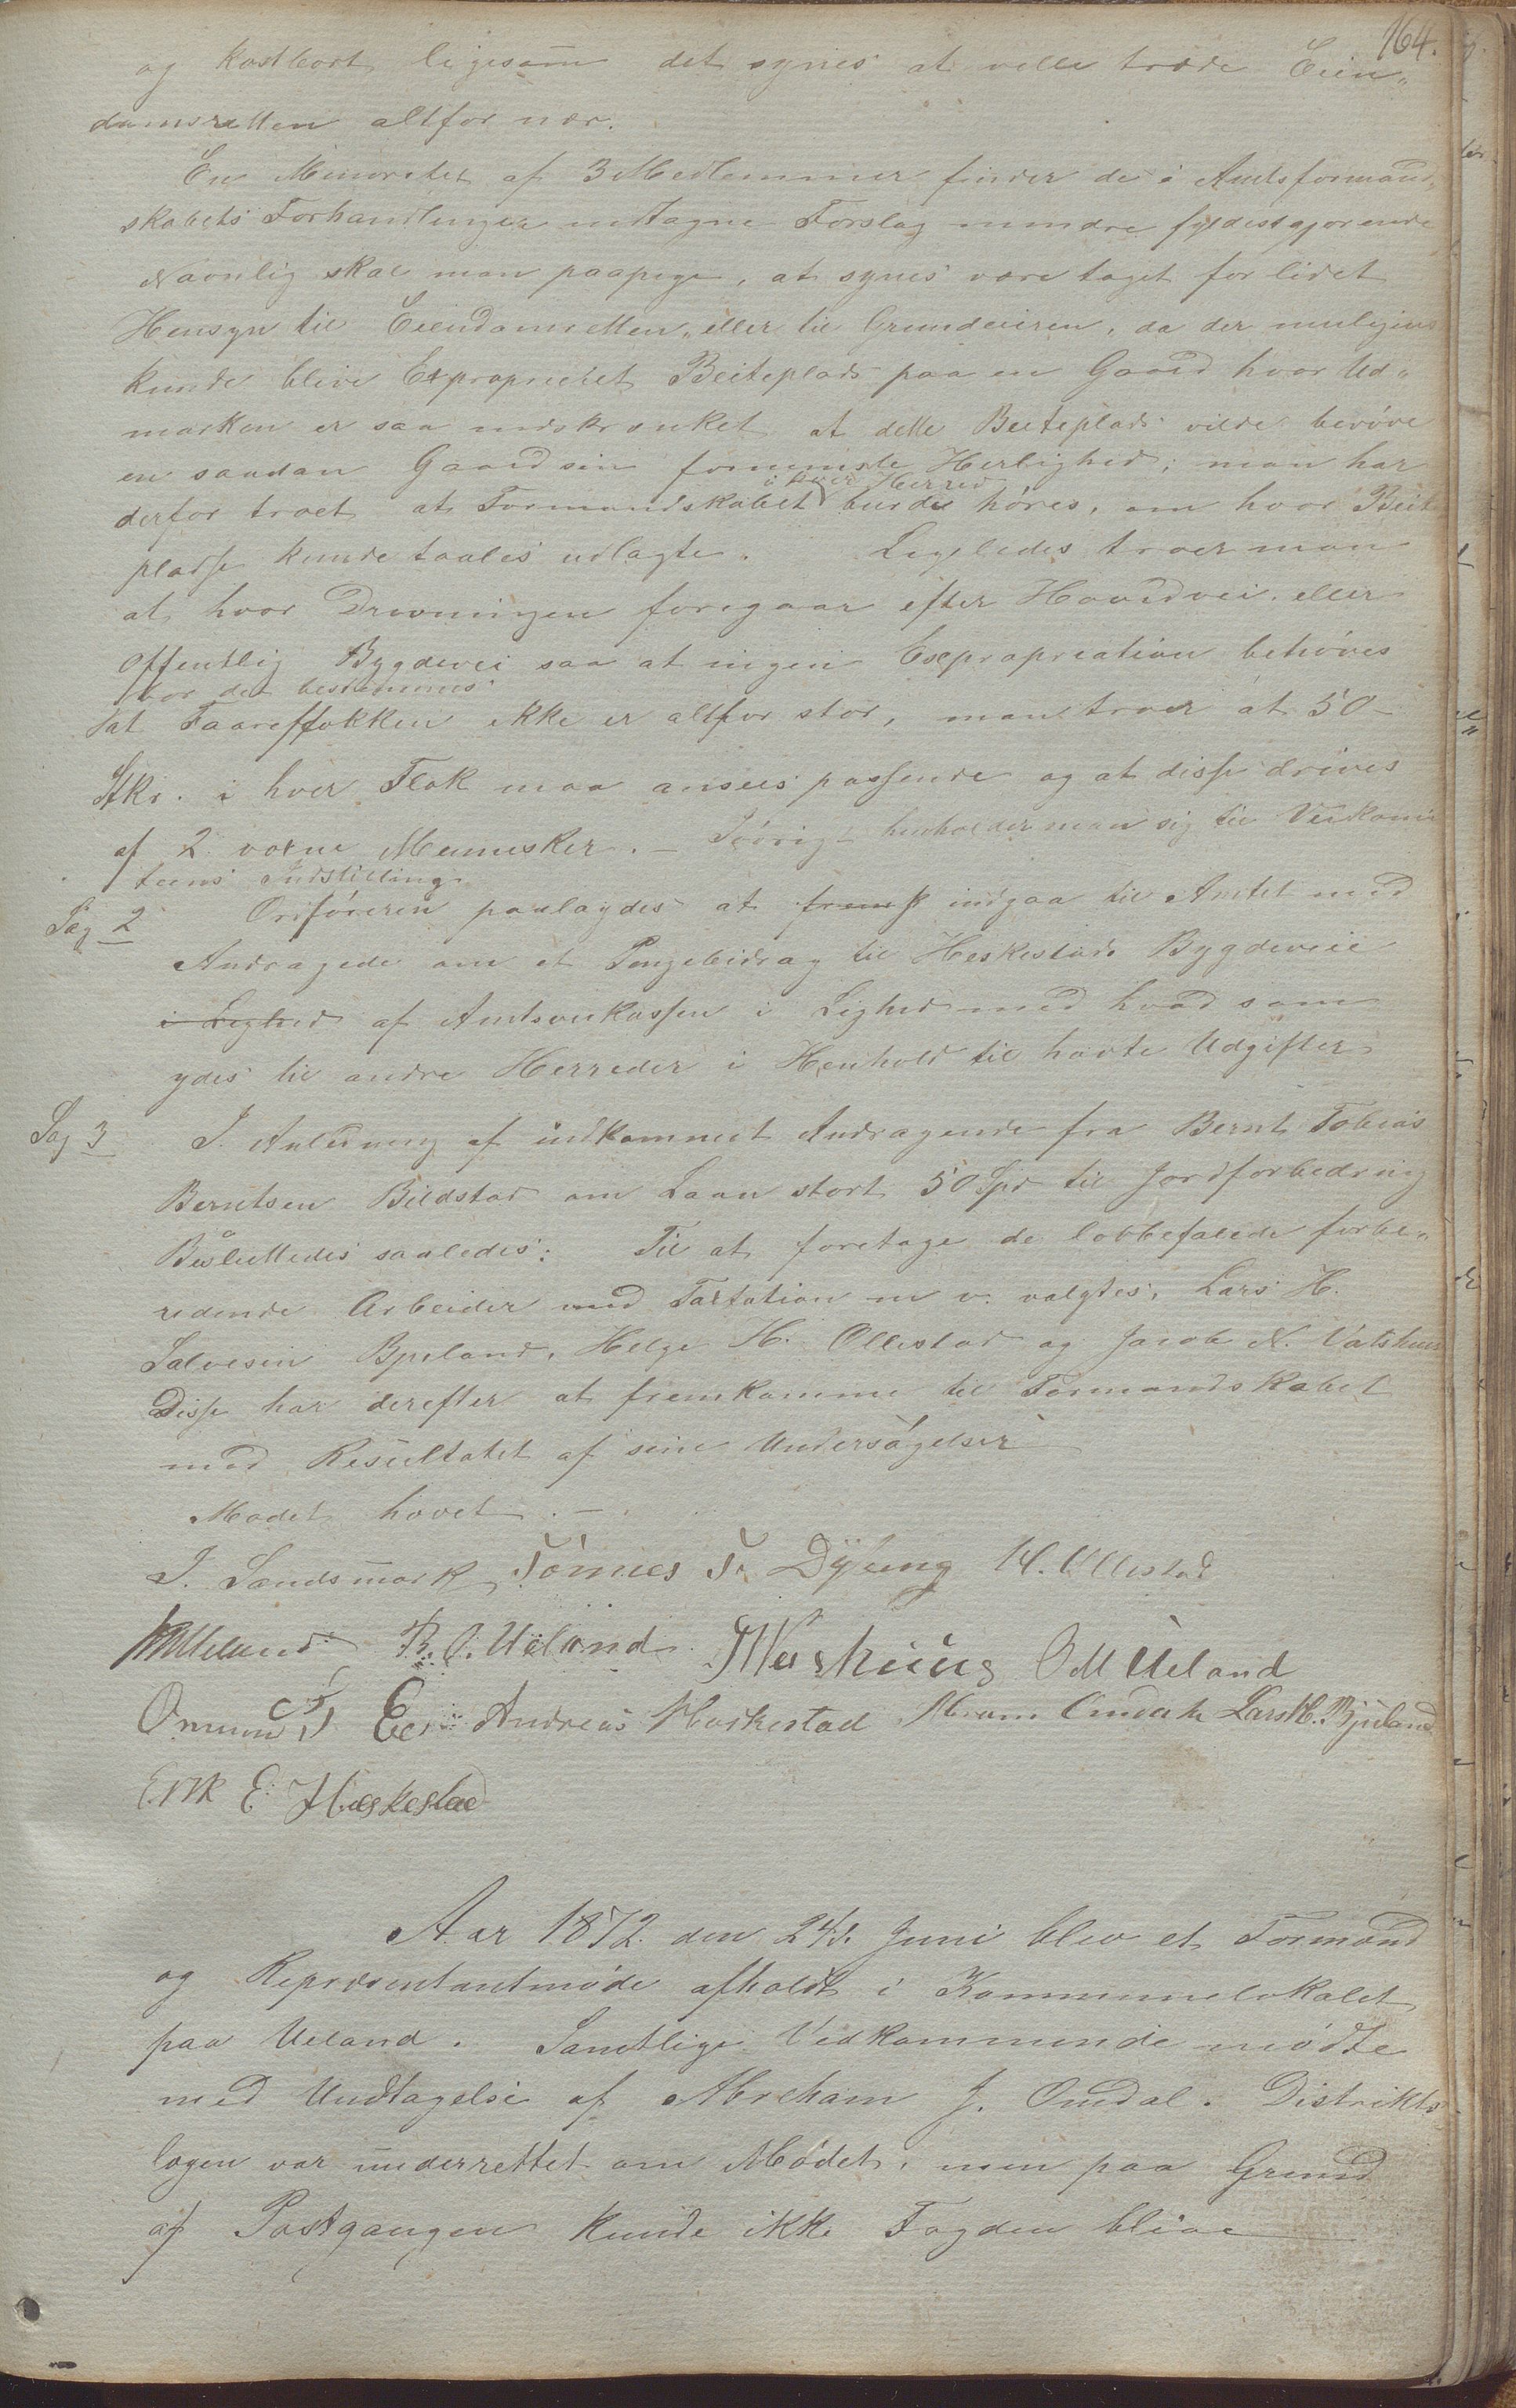 164.
og kostbart ligesom det synes at ville træde Eien„
domsretten altfor nær.
En Minoritet af 3 Medlemmer finder de i Amtsformand„
skabets Forhandlinger indtagne Forslag mindre fyldestgjørende
Navnlig skal man paapege, at synes være taget for lidet
Hensyn til Eiendomsretten, eller til Grundeieren, da der muligens
kunde blive Exproprieret Beiteplads paa en Gaard hvor Ud„
marken er saa indskrænket at dette Beiteplads vilde berøve
en saadan Gaard sin fornemste Herlighed; man har
i hver Herred
derfor troet at Formandskabet burde høres, om hvor Beite
pladse kunde taales udlagte. Ligeledes troer man
at hvor Drivningen foregaar efter Hovedvei eller
offentlig Bygdevei saa at ingen Expropriation behøves
bør det bestemmes
at Faareflokken ikke er altfor stor, man troer at 50
Stkr. i hver Flok maa ansees passende og at disse drives
af 2 voxne Mennesker. – Iøvrigt henholder man sig til Veikomi
teens Indstilling.
Sag 2 Ordføreren paalagdes at indgaa til Amtet med
Andragede om et Pengebidrag til Heskestads Bygdeveie
i Lighed af Amtsveikassen i Lighed med hvad som
ydes til andre Herreder i Henhold til havte Udgifter
Sag 3 I Anledning af indkommet Andragende fra Bernt Tobias
Berntsen Bildstad om Laan stort 50 Spd til Jordforbedring
Besluttedes saaledes: Til at foretage de lovbefalede forbe„
redende Arbeider med Taxtation m v. valgtes, Lars H.
Salvesen Bjuland, Helge H. Ollestad og Jacob N. Vatshuus
Disse har derefter at fremkomme til Formandskabet
med Resultatet af sine Undersøgelser
Mødet hævet. –
I. Sandsmark Tönnes T. Dÿbing H. Ollestad
R. O. Ueland O M Ueland
Omund Andreas Heskestad Lars H. Bjuland
Erik E. Heskestad
Aar 1872 den 24d. Juni blev et Formand
og Repræsentantmøde afholdt i Kommunelokalet
paa Ueland. Samtlige Vedkommende mødte
med Undtagelse af Abreham J. Omdal. Distrikts
lægen var underrettet om Mødet, men paa Grund
af Postgangen kunde ikke Fogden blive